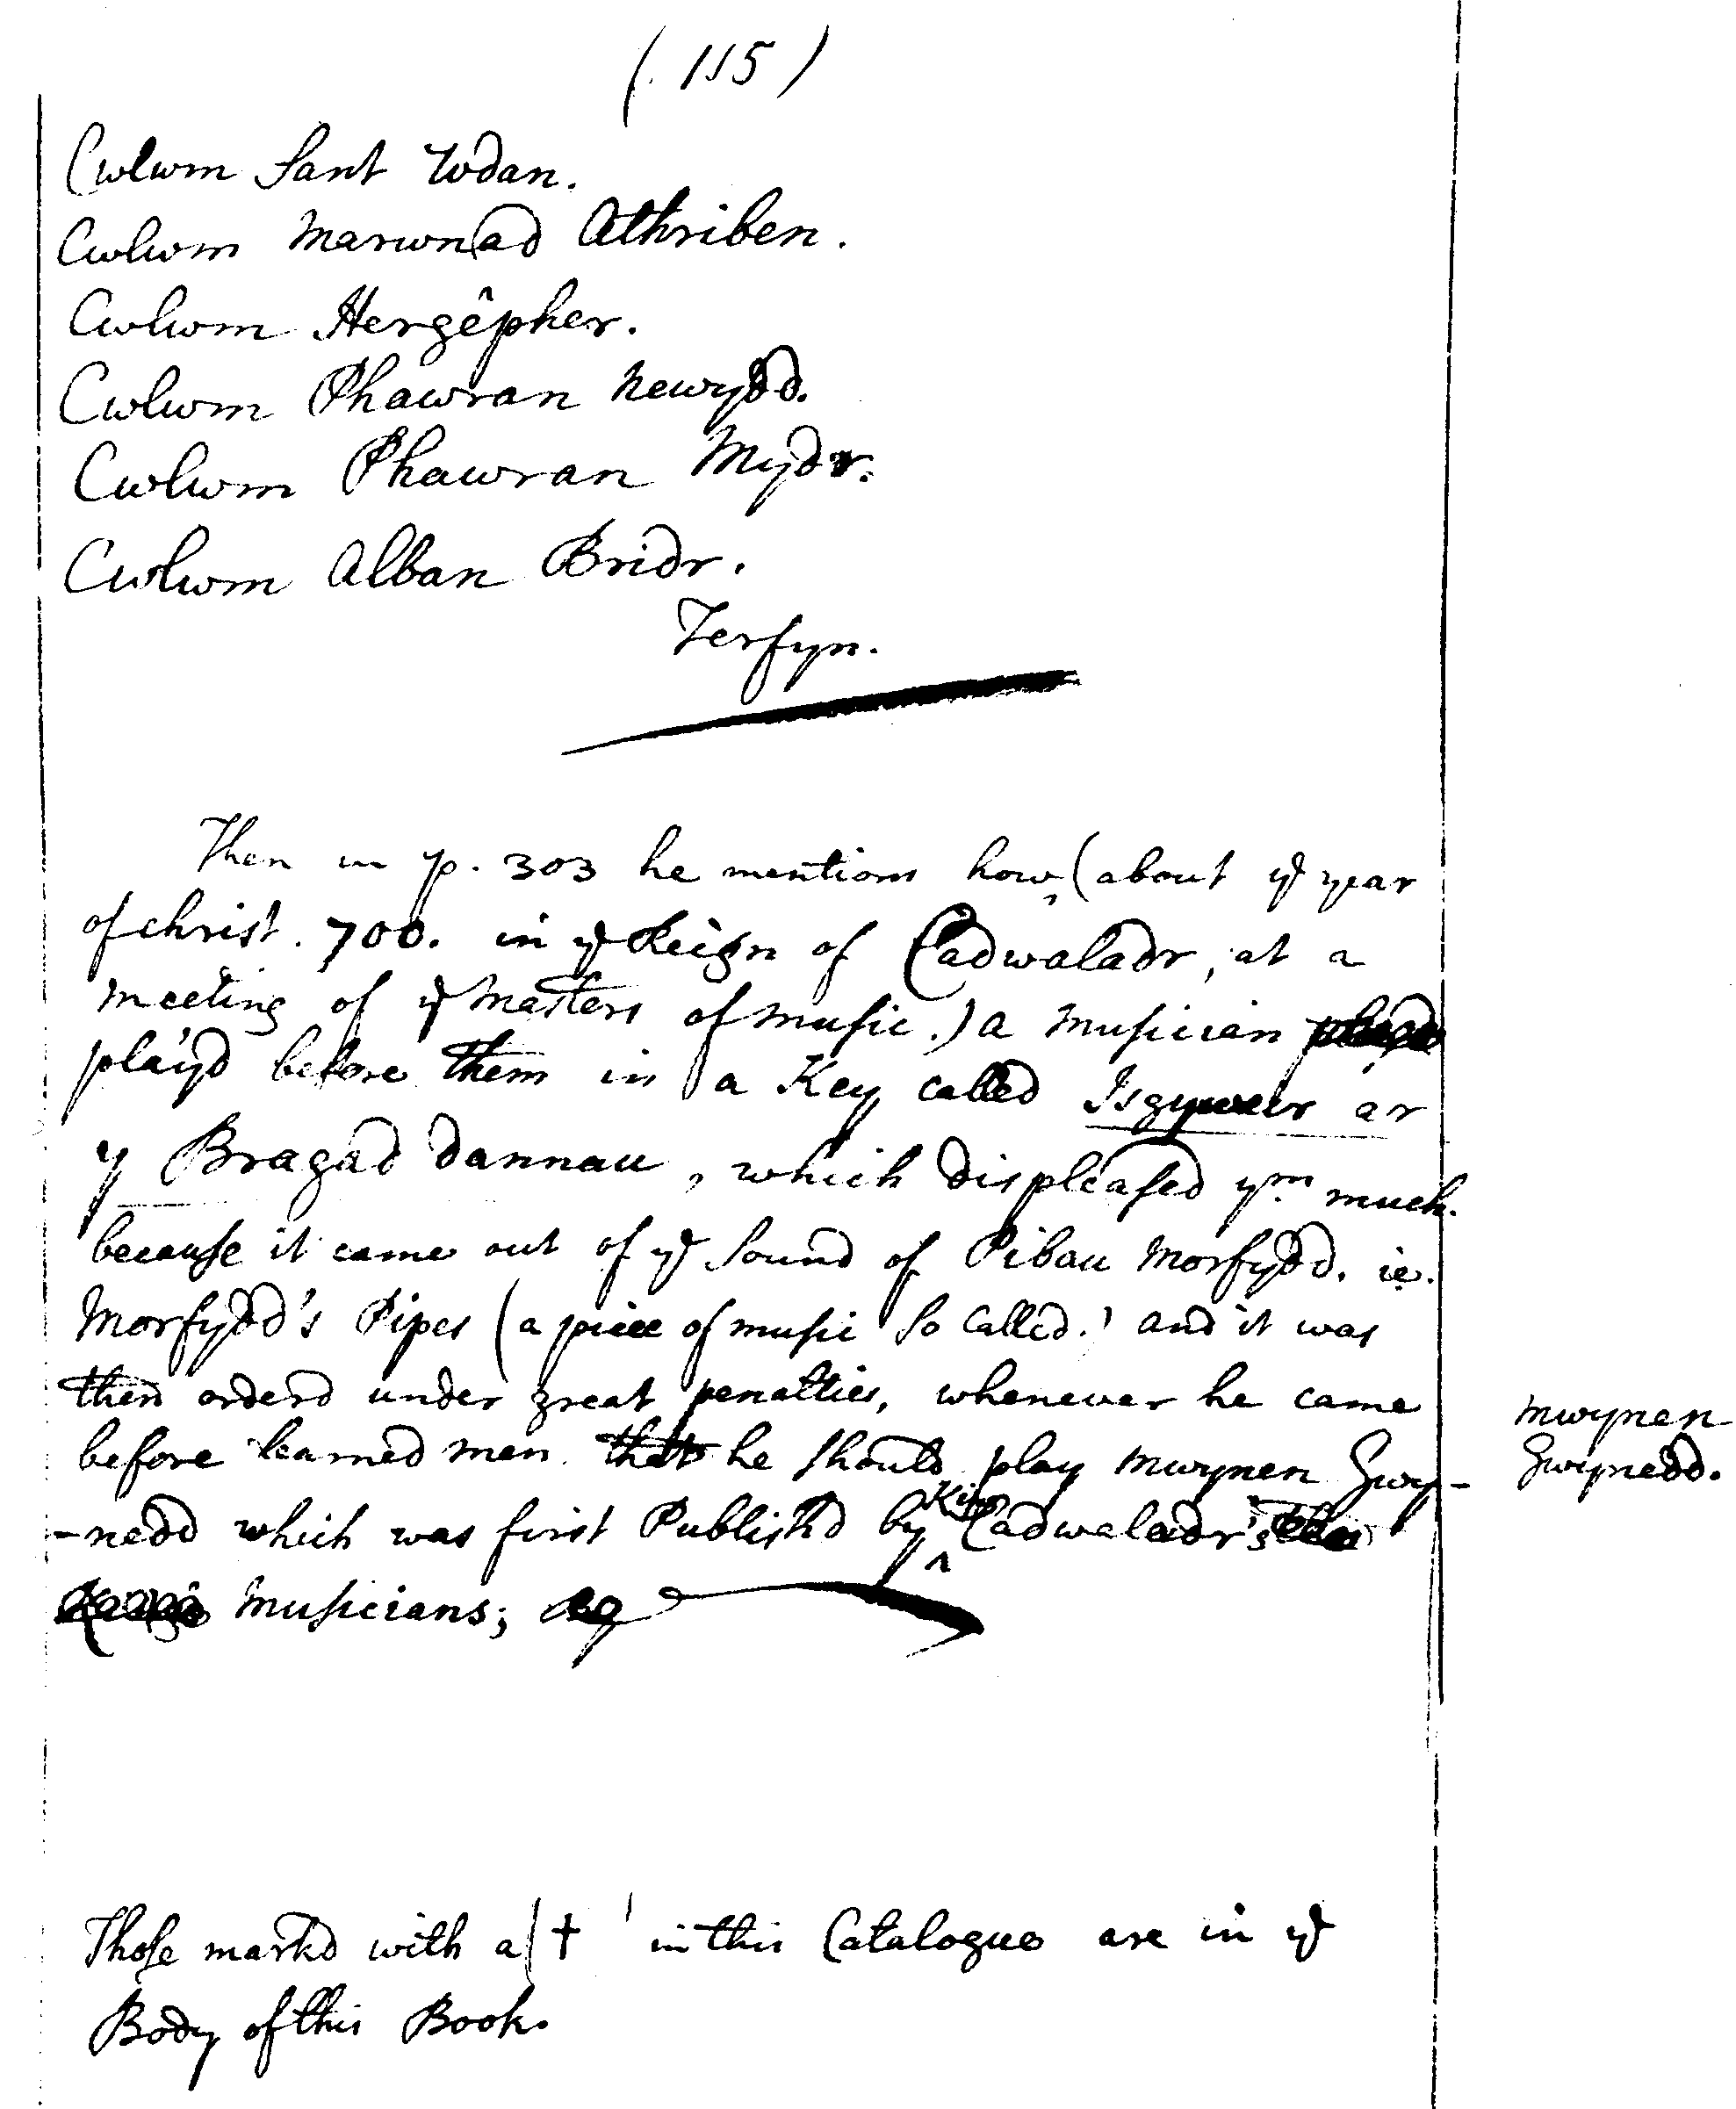 (115)
Cwlwm Sant Iodan.
Cwlwm Marwnad Athriben.
Cwlwm Hergêpher.
Cwlwm Phawran newydd.
Cwlwm Phawran Mydr.
Cwlwm Alban Bridr.
Terfyn.
Then in p. 303 he mentions how, (about ye year
of Christ. 700. in ye Reign of Cadwaladr, at a
meeting of ye Masters of Music.) a Musician
play'd before them in a Key called Isgywair ar
y Bragad dannau, which displeased ym much.
because it came out of ye Sound of Pibau Morfydd. ie.
Morfydd's Pipes (a piece of music so called.) and it was
then orderd under great penalties, whenever he came
before learned men that he should play Mwynen Gwy-
-nedd which was first Publish'd by King Cadwaladr's
Musicians;
Mwynen
Gwynedd.
Those mark'd with a (†) in this Catalogue are in ye
Body of this Book.